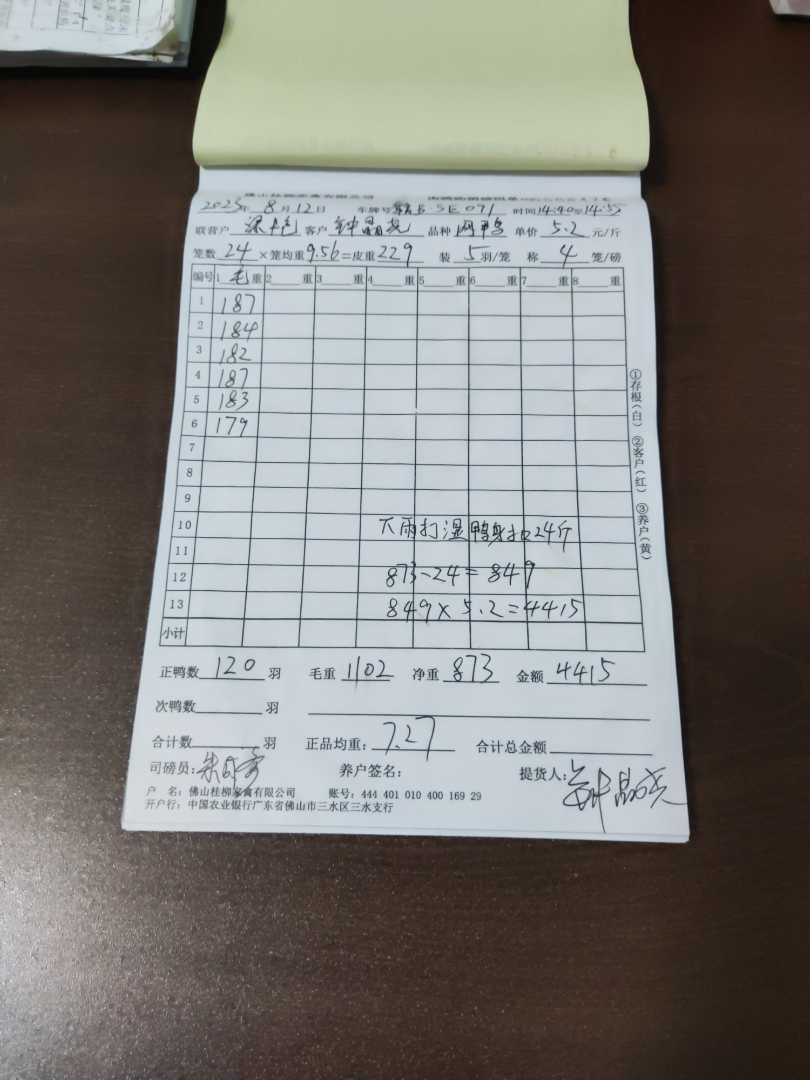 佛山桂柳家禽有限公司
2025年 8月12日 车牌号 5E071 时间14:40至14:55
联营户 客户 钟晶亮 品种 肉鸭 单价 5.2 元/斤
笼数 24 ×笼均重 9.56 =皮重 229 装 5 羽/笼 称 4 笼/磅
编号 1 毛 重 2 重 3 重 4 重 5 重 6 重 7 重 8 重
1 187
2 184
3 182
4 187
5 183
6 179
7
8
9
10 下雨打湿鸭身扣24斤
11
12 873-24=849
13 849×5.2=4415
小计
①存根(白) ②客户(红) ③养户(黄)
正鸭数 120 羽 毛重 1102 净重 873 金额 4415
次鸭数 羽
合计数 羽 正品均重: 7.27 合计总金额
司磅员: 养户签名: 提货人: 钟晶亮
户 名: 佛山桂柳家禽有限公司 账号: 444 401 010 400 169 29
开户行: 中国农业银行广东省佛山市三水区三水支行